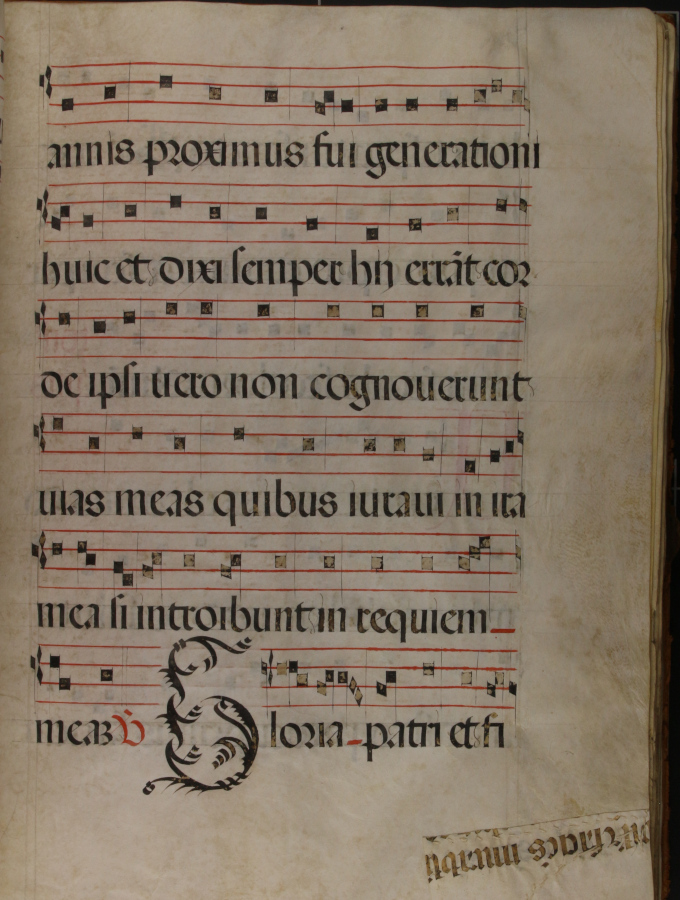 annis proximus fui generationi
huic et dixi semper hij errāt cor
de ipsi vero non cognoverunt
vias meas quibus iuravi in ira
mea si introibunt in requiem
meaȝ ℣ Gloria patri et fi